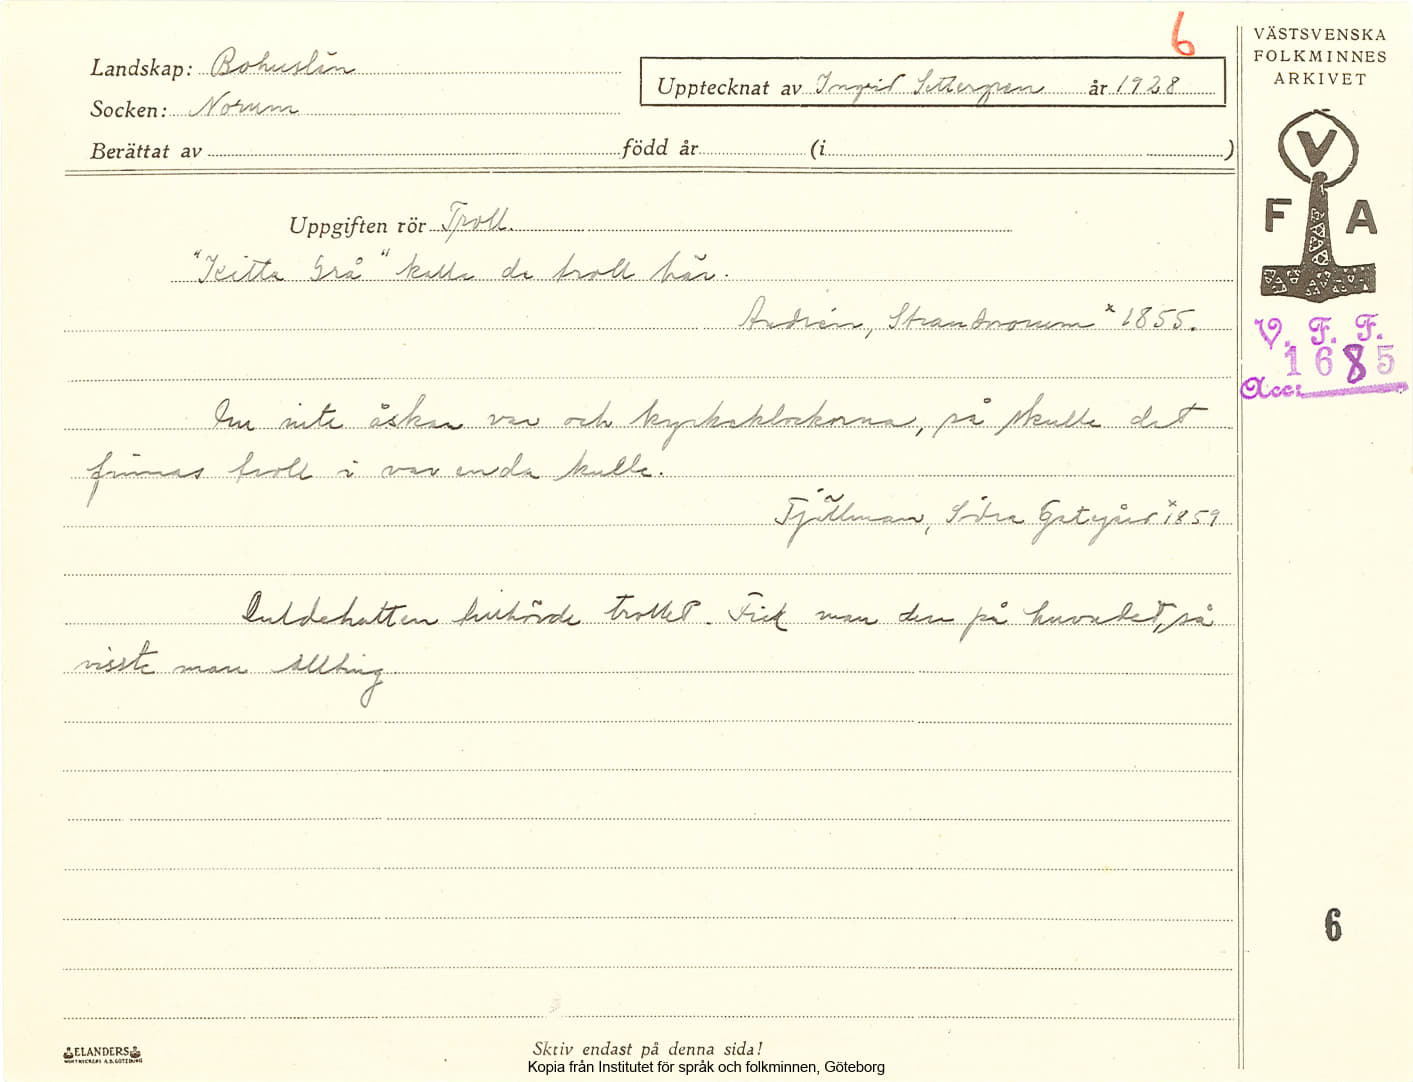 6
VÄSTSVENSKA
FOLKMINNES
ARKIVET
Landskap: Bohuslän
Upptecknat av Ingrid Settergren år 1928
Socken: Norum
Berättat av född år (i )
V
F A
Uppgiften rör Troll.
"Kitta Grå" kalla de troll här.
Andrén, Strandnorum x 1855.
V. F. F.
1685
Acc:
Om inte åskan var och kyrkeklockorna, så skulle det
finnas troll i var enda kulle.
Tjällman, Södra x 1859
Duldehatten tillhörde trollet. Fick man den på huvudet, så
visste man allting.
6
ELANDERS
Skriv endast på denna sida!
Kopia från Institutet för språk och folkminnen, Göteborg